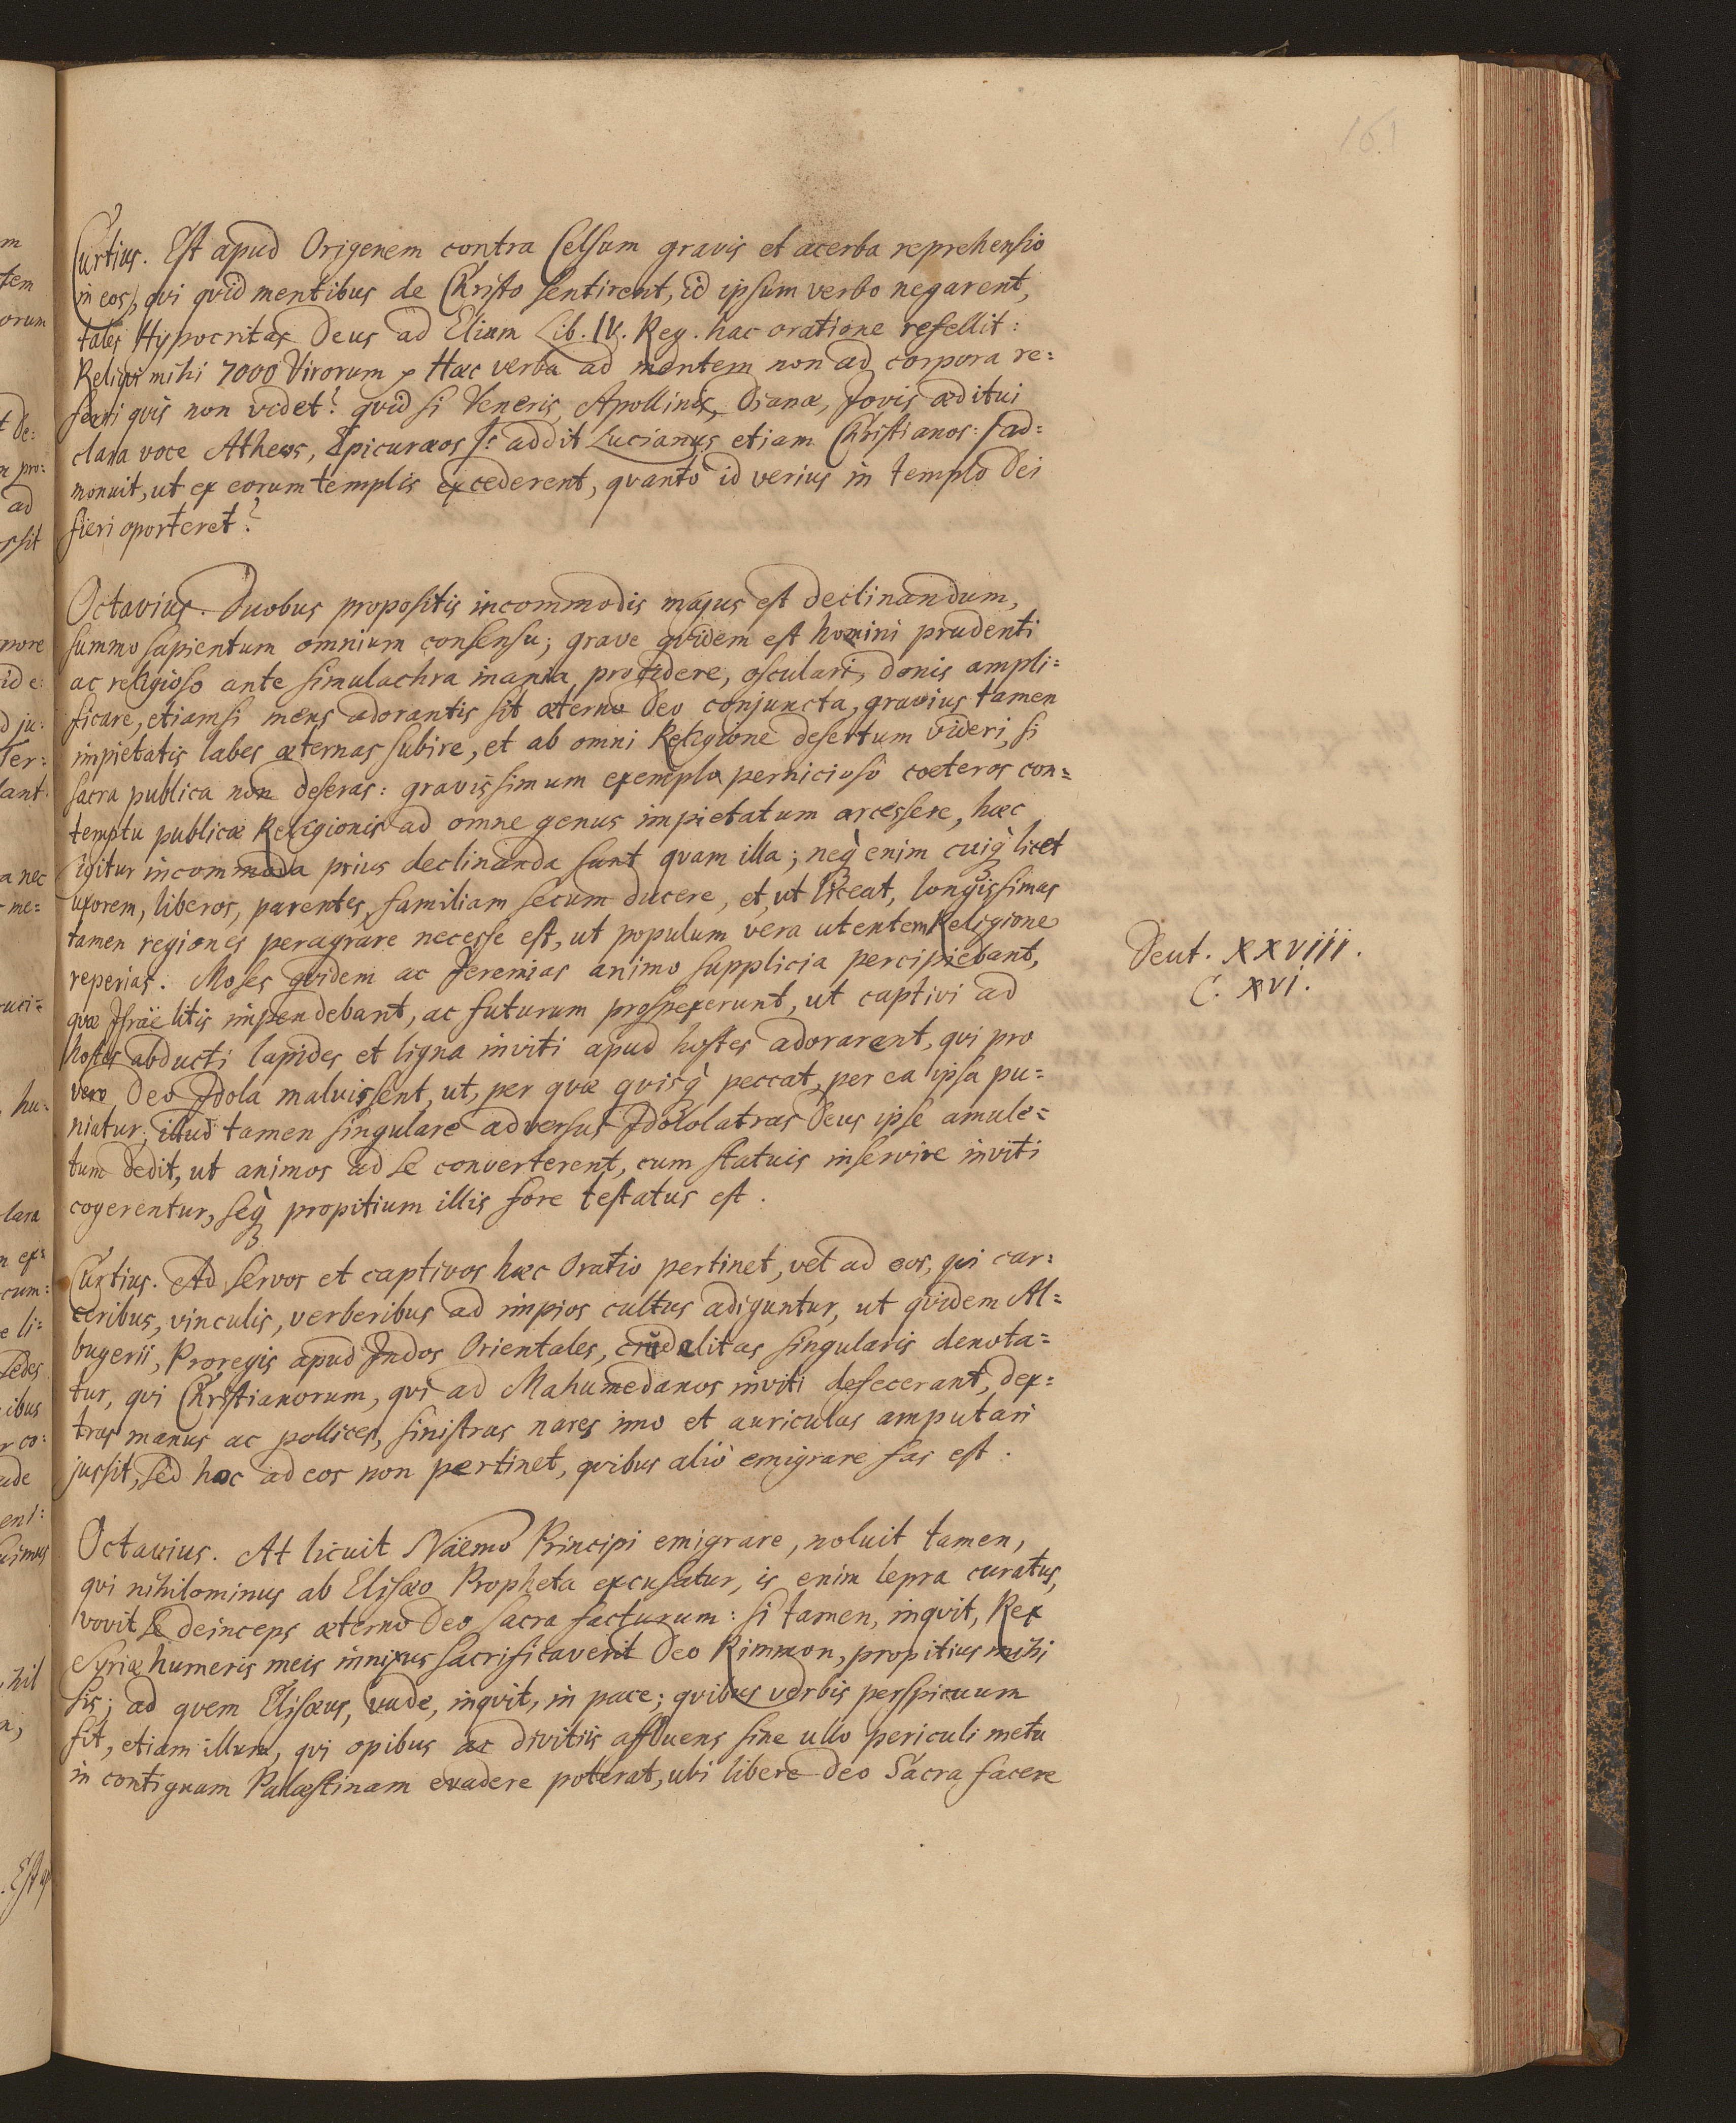 161
Curtius. Est apud Origenem contra Celsum gravis et acerba reprehensio
in eos, qvi qvid mentibus de Christo sentirent, id ipsum verbo negarent,
tales Hypocritas Deus ad Eliam Lib. IV. Reg. hac oratione refellit:
Reliqvi mihi 7000 Virorum Hæc verba ad mentem non ad corpora re=
ferri qvis non videt? qvid si Veneris, Apollinis, Dianæ, Jovis æditui
clara voce Atheos, Epicuræos /: addit Lucianus etiam Christianos: /ad=
monuit, ut ex eorum templis excederent, qvantò id verius in templo Dei
fieri oporteret?
Octavius. Duobus propositis incommodis majus est declinandum,
summo sapientum omnium consensu; grave qvidem est homini prudenti
ac religioso ante simulachra inania procidere, osculari, donis ampli=
ficare, etiamsi mens adorantis sit æterno Deo conjuncta, gravius tamen
impietatis labes æternas subire, et ab omni Religione desertum videri, si
sacra publica non deseras: gravissimum exemplo pernicioso cœteros con=
temptu publicæ Religionis ad omne genus impietatum arcessere, hæc
igitur incommoda prius declinanda sunt qvam illa; neq̀ enim cuiq̀ licet
uxorem, liberos, parentes, familiam secum ducere, et, ut liceat, longissimas
tamen regiones peragrare necesse est, ut populum vera utentem Religione
reperias. Moses qvidem ac Jeremias animo supplicia percipiebant,
qvæ Israëlitis impendebant, ac futurum prospexerunt, ut captivi ad
hostes abducti lapides et ligna inviti apud hostes adorarent, qvi pro
vero Deo Idola maluissent, ut, per qvæ qvisq̀ peccat, per ea ipsa pu=
niatur; illud tamen singulare adversus Idololatras Deus ipse amule=
tum dedit, ut animos ad se converterent, cum statuis inservire inviti
cogerentur, seq̀ propitium illis fore testatus est.
Deut. XXVIII.
C. XVI.
Curtius. Ad servos et captivos hæc Oratio pertinet, vel ad eos, qvi car=
ceribus, vinculis, verberibus ad impios cultus adiguntur, ut qvidem Al=
bugerii, Proregis apud Indos Orientales, crudelitas singularis denota=
tur, qvi Christianorum, qvi ad Mahumedanos inviti defecerant, dex=
tras manus ac pollices, sinistras nares imo et auriculas amputari
jussit, sed hoc ad eos non pertinet, qvibus aliò emigrare fas est.
Octavius. At licuit Näemo Principi emigrare, noluit tamen,
qvi nihilominus ab Elisæo Propheta excusatur, is enim lepra curatus,
vovit se deinceps æterno Deo sacra facturum: si tamen, inqvit, Rex
Syriæ humeris meis innixus sacrificaverit Deo Rimmon, propitius mihi
sis; ad qvem Elisæus, vade, inqvit, in pace; qvibus verbis perspicuum
fit, etiam illum, qvi opibus ac divitiis affluens sine ullo periculi metu
in contiguam Palæstinam evadere poterat, ubi libere Deo Sacra facere